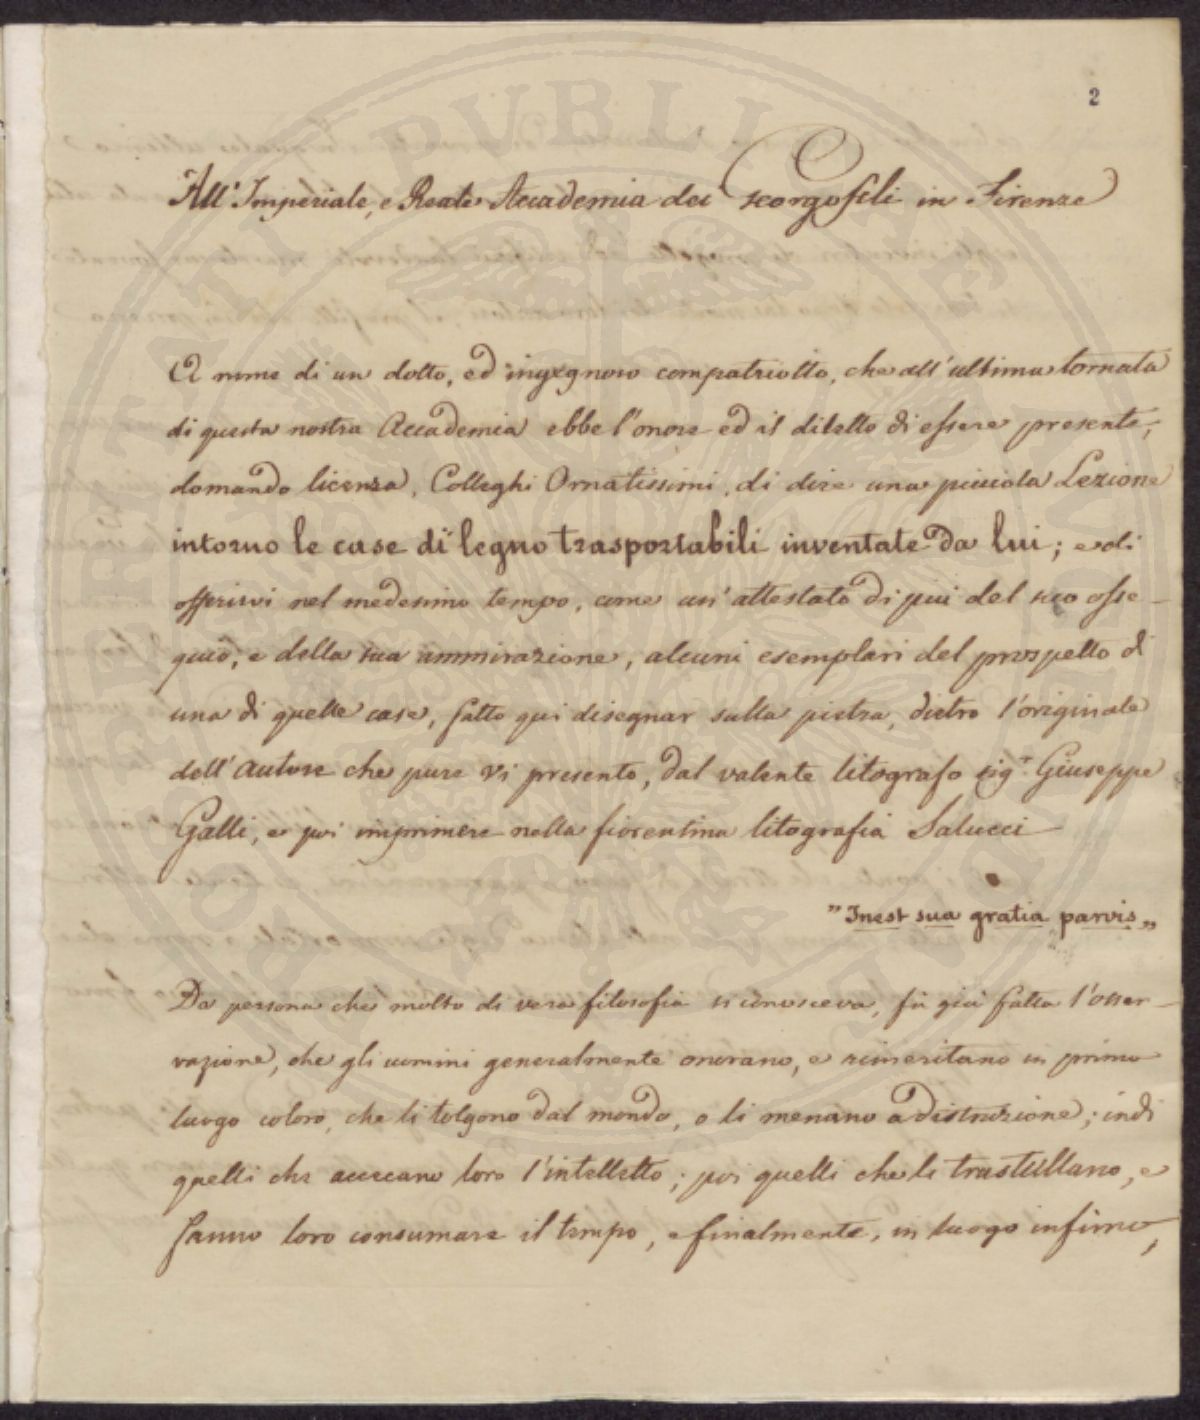 2
All'Imperiale, e Reale Accademia dei Georgofili in Firenze
A nome di un dotto, ed ingegnoso compatriotto, che all'ultima tornata
di questa nostra Accademia ebbe l'onore ed il diletto di essere presente,
domando licenza, Colleghi Ornatissimi, di dire una picciola Lezione
intorno le case di legno trasportabili inventate da lui; e di
offerirvi nel medesimo tempo, come un'attestato di più del suo osse-
quio, e della sua ammirazione, alcuni esemplari del prospetto di
una di quelle case, fatto qui disegnar sulla pietra, dietro l'originale
dell'autore che pure vi presento, dal valente litografo Sigr. Giuseppe
Galli, e poi imprimere nella fiorentina litografia Salucci
"Inest sua gratia parvis„
Da persona che molto di vera filosofia si conosceva, fù già fatta l'osser-
vazione, che gli uomini generalmente onorano, e rimeritano in primo
luogo coloro, che li tolgono dal mondo, o li menano a distruzione; indi
quelli che accecano loro l'intelletto; poi quelli che li trastullano, e
fanno loro consumare il tempo, e finalmente, in luogo infimo,
PROSPERITATI PUBLICAE AUGENDAE